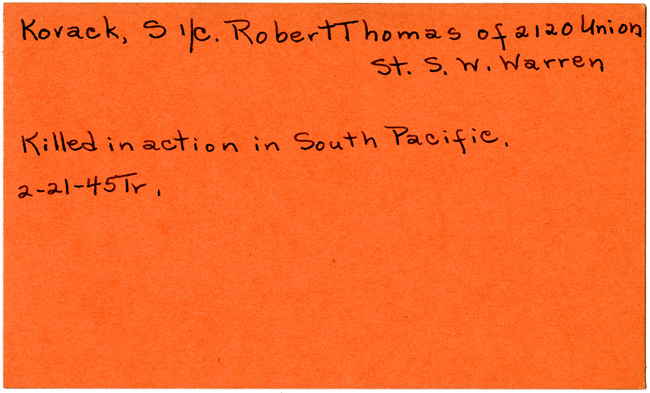 Kovack, S 1/c. Robert Thomas of 2120 Union
St. S. W. Warren
Killed in action in South Pacific.
2-21-45 Tr.